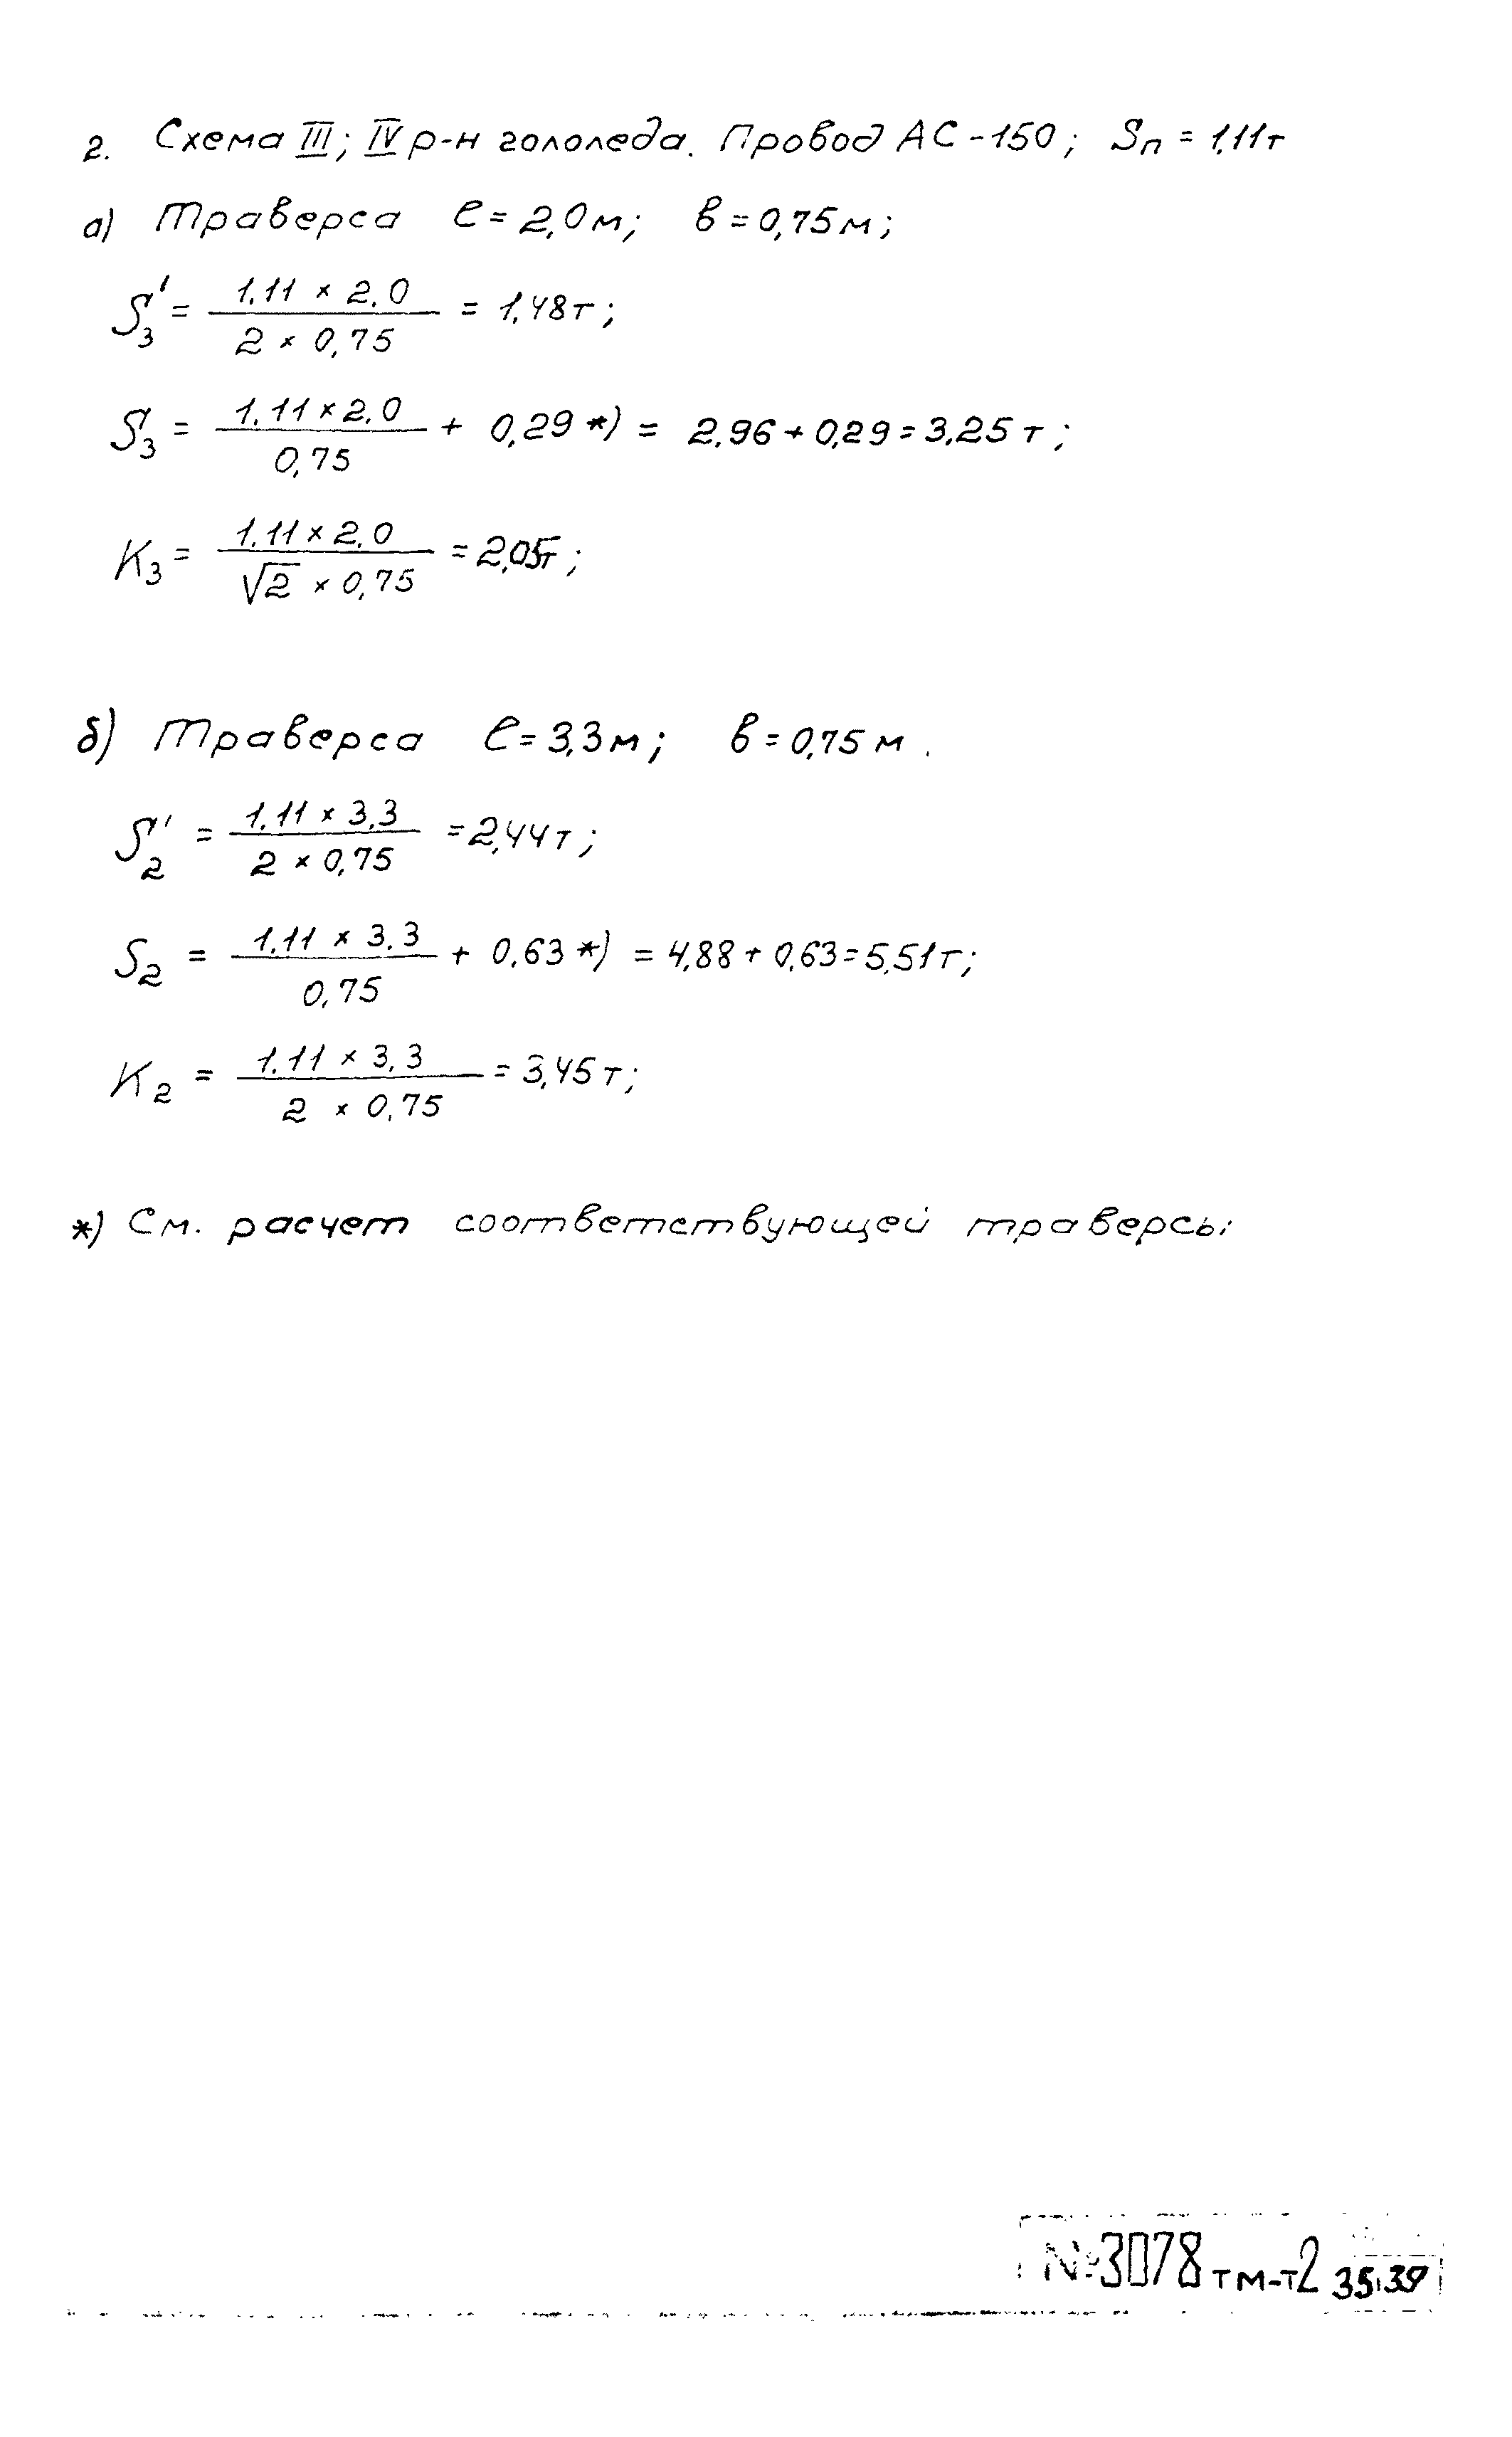 2. Схема III; IV р-н гололеда. Провод АС-150; Sп = 1,11т
а) Траверса l = 2,0м; в = 0,75м;
S'3 = 1,11 × 2,0 / 2 × 0,75 = 1,48т;
S3 = 1,11 × 2,0 / 0,75 + 0,29 *) = 2,96 + 0,29 = 3,25т;
К3 = 1,11 × 2,0 / √2 × 0,75 = 2,05т;
б) Траверса l = 3,3м; в = 0,75м.
S'2 = 1,11 × 3,3 / 2 × 0,75 = 2,44т;
S2 = 1,11 × 3,3 / 0,75 + 0,63 *) = 4,88 + 0,63 = 5,51т;
К2 = 1,11 × 3,3 / 2 × 0,75 = 3,45т;
*) См. расчет соответствующей траверсы
№3078тм-т2 35 39